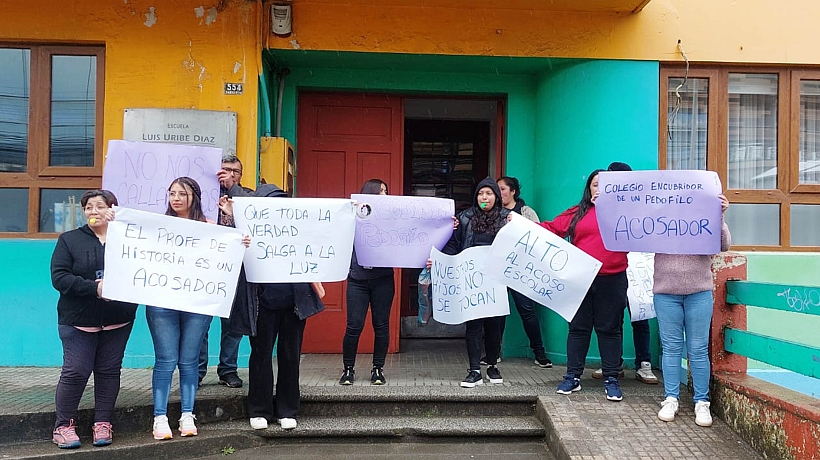 554
ESCUELA
LUIS URIBE DIAZ
NO NOS
CALLARAN
EL PROFE DE
HISTORIA ES UN
ACOSADOR
QUE TODA LA
VERDAD
SALGA A LA
LUZ
NUESTROS
HIJOS NO
SE TOCAN
ALTO
AL ACOSO
ESCOLAR
COLEGIO ENCUBRIDOR
DE UN PEDOFILO
ACOSADOR